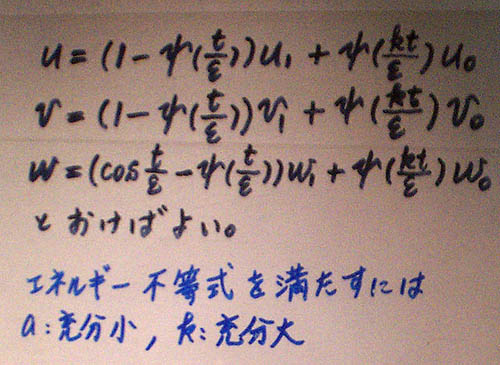 u = (1 - ψ(t/ε))u₁ + ψ(kt/ε)u₀
v = (1 - ψ(t/ε))v₁ + ψ(kt/ε)v₀
w = (cos t/ε - ψ(t/ε))w₁ + ψ(kt/ε)w₀
とおけばよい。
エネルギー不等式を満たすには
a:充分小, k:充分大